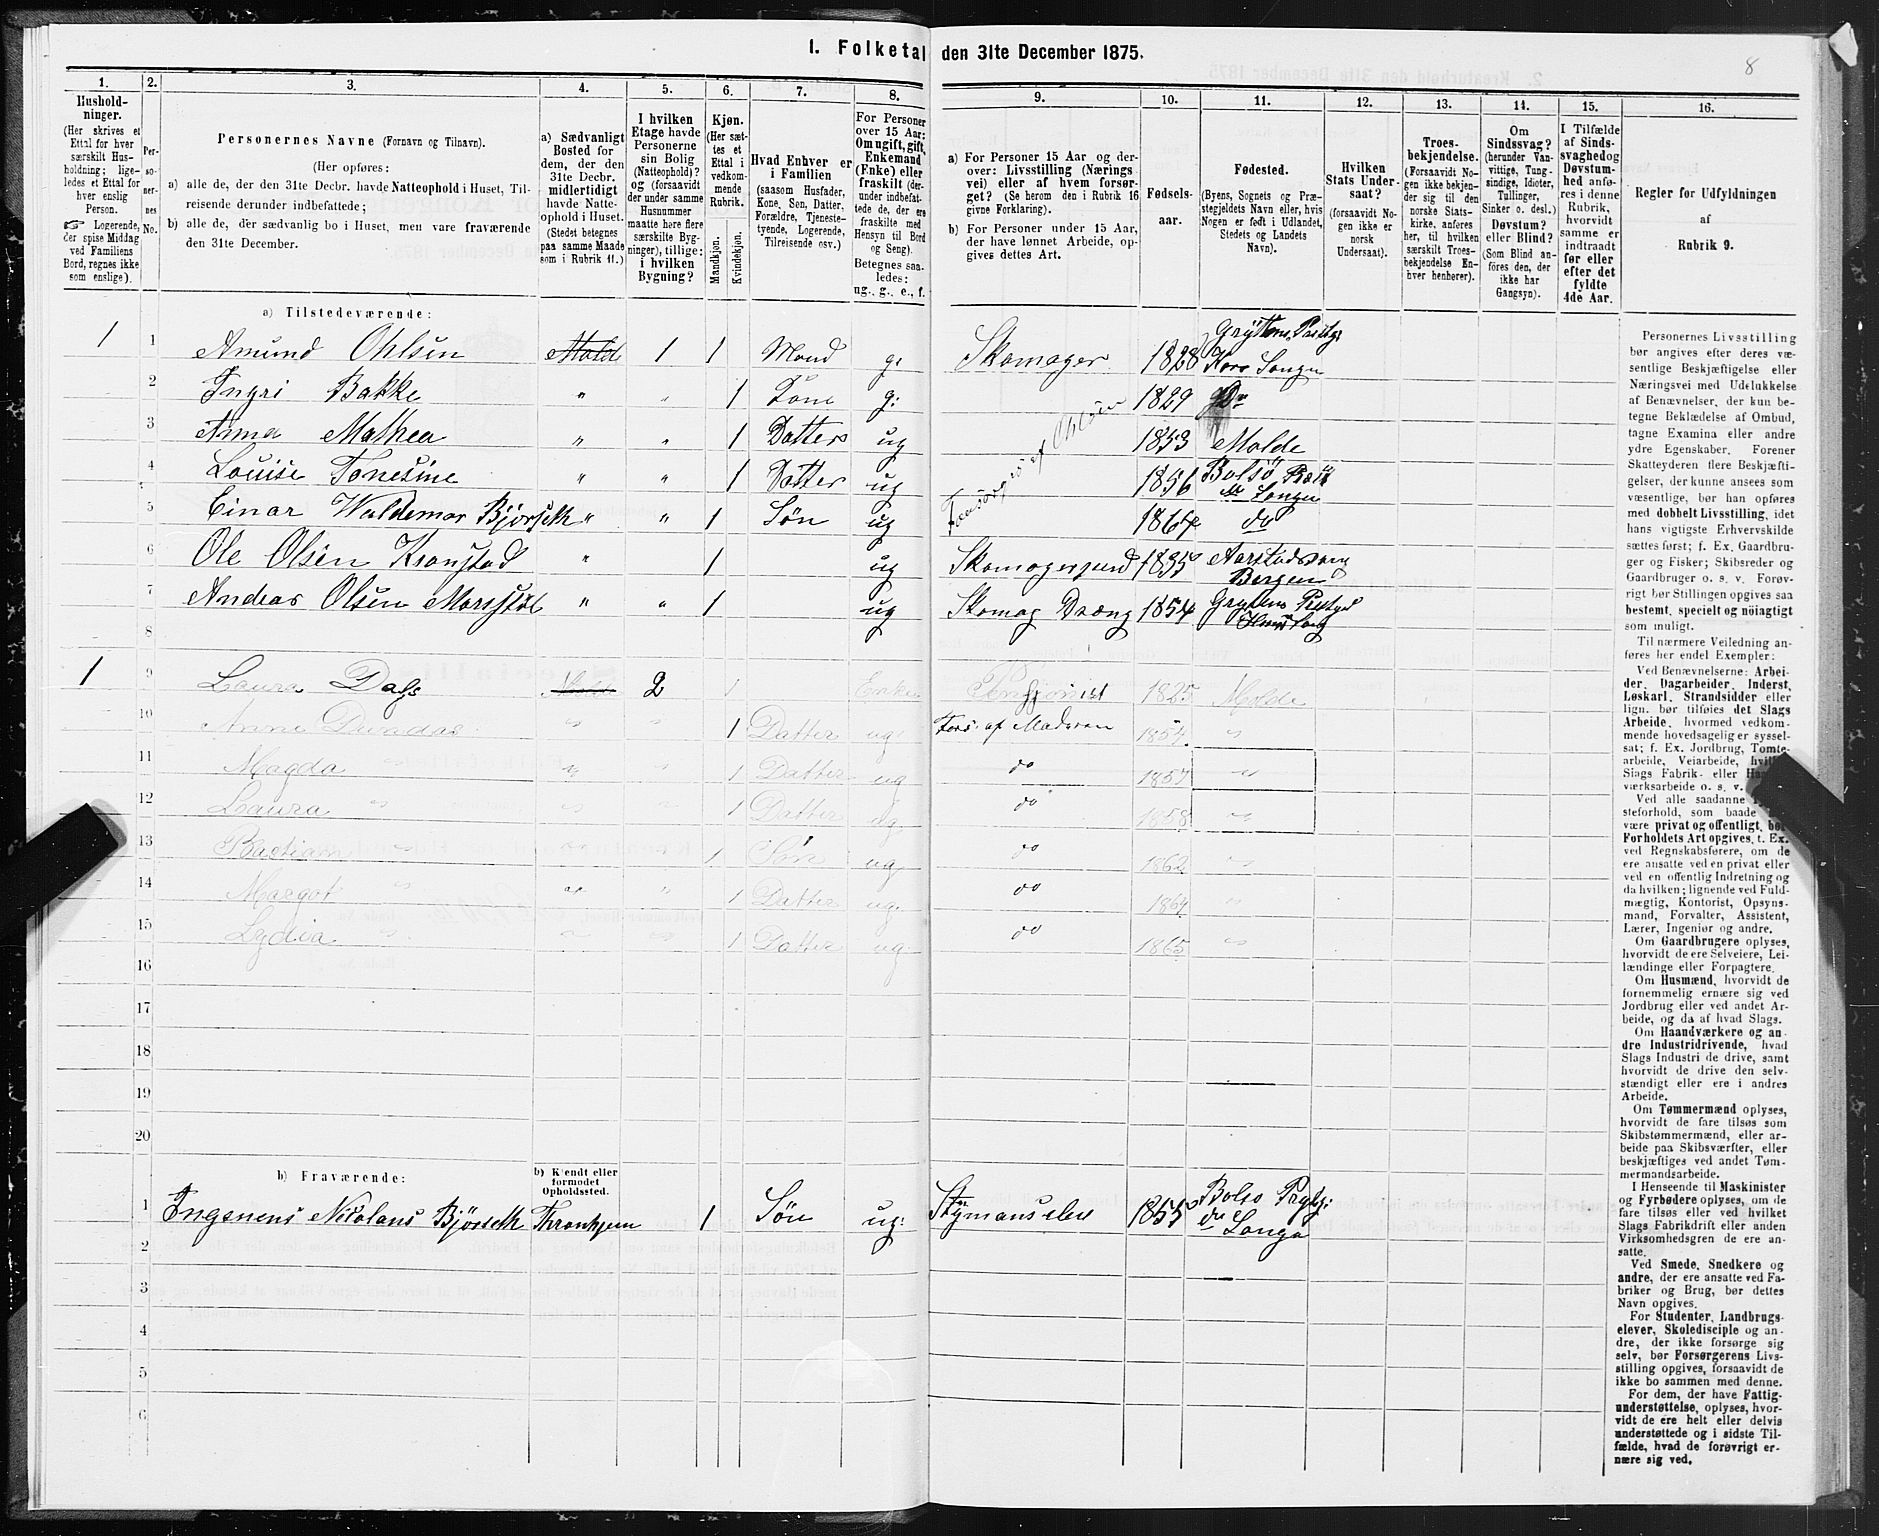 1. Folketal den 31te December 1875.
8
1.
Hushold-
ninger.
(Her skrives et
Ettal for hver
særskilt Hus-
holdning; lige-
ledes et Ettal for
hver enslig
Person.
☞ Logerende,
der spise Middag
ved Familiens
Bord, regnes ikke
som enslige).
2.
Per-
so-
ner-
nes
No.
3.
Personernes Navne (Fornavn og Tilnavn).
(Her opføres:
a) alle de, der den 31te Decbr. havde Natteophold i Huset, Til-
reisende derunder indbefattede;
b) alle de, der sædvanlig bo i Huset, men vare fraværende
den 31te December.
4.
a) Sædvanligt
Bosted for
dem, der den
31te Decbr.
midlertidigt
havde Natte-
ophold i Huset.
(Stedet betegnes
paa samme Maade
som i Rubrik 11.)
5.
I hvilken
Etage havde
Personerne
sin Bolig
(Natteophold)?
og (forsaavidt
der under samme
Husnummer
maatte høre flere
særskilte Byg-
ninger), tillige:
i hvilken
Bygning?
6.
Kjøn.
(Her sæt-
tes et
Ettal i
vedkom-
mende
Rubrik.
Mandkjøn.
Kvindekjøn.
7.
Hvad Enhver er
i Familien
(saasom Husfader,
Kone, Søn, Datter,
Forældre, Tjeneste-
tyende, Logerende,
Tilreisende osv.)
8.
For Personer
over 15 Aar:
Om ugift, gift,
Enkemand
(Enke) eller
fraskilt (der-
under indbefat-
tede de, der ere
fraskilte med
Hensyn til Bord
og Seng).
Betegnes saa-
ledes:
ug., g., e., f.
9.
a) For Personer 15 Aar og der-
over: Livsstilling (Nærings
vei) eller af hvem forsør-
get? (Se herom den i Rubrik 16
givne Forklaring).
b) For Personer under 15 Aar,
der have lønnet Arbeide, op-
gives dettes Art.
10.
Fødsels-
aar.
11.
Fødested.
(Byens, Sognets og Præ-
stegjeldets Navn eller, hvis
Nogen er født i Udlandet,
Stedets og Landets
Navn).
12.
Hvilken
Stats Under-
saat?
(forsaavidt No-
gen ikke er
norsk
Undersaat).
13.
Troes-
bekjendelse.
(Forsaavidt No-
gen ikke bekjen-
der sig til den
norske Stats-
kirke, anføres
her, til hvilken
særskilt Troes-
bekjendelse En-
hver henhører).
14.
Om
Sindssvag?
(herunder Van-
vittige, Tung-
sindige, Idioter,
Tullinger,
Sinker o. desl.)
Døvstum?
eller Blind?
(Som Blind an-
føres den, der
ikke har
Gangsyn).
15.
I Tilfælde
af Sinds-
svaghed og
Døvstum-
hed anfø-
res i denne
Rubrik,
hvorvidt
samme er
indtraadt
før eller
efter det
fyldte
4de Aar.
16.
Regler for Udfyldningen
af
Rubrik 9.
a) Tilstedeværende:
1 1 Amund Ohlsen Molde 1 1 Mand g. Skomager 1828 Gryttens Prestgj Hers Songn
2 Ingri Bakke " " 1 Kone g: 1829 Do
3 Anna Mathea " " 1 Datters ug 1853 Molde
4 Louise Tonesine " " 1 Datter ug 1856 Bolsø Præst do Songn
5 Einar Waldemar Bjørseth " " 1 Søn ug 1864 do
Forsørges af Ohlsen
6 Ole Olsen Kronstad " 1 ug Skomagersvend 1835 Aarstadsogn Bergen
7 Andeas Olsen Morstøl " " 1 ug Skomag Dræng 1854 Gryttens Prestgjd
8
1 9 Laura Dahl Molde 2 1 Enke Pensjonist 1825 Molde
10 Anne " " 1 Datter ug. Fors: af Moderen 1854. "
11 Magda " " 1 Datter ug do 1857 "
12 Laura " " " 1 Datter ug. do 1858 "
13 Bastian " " " 1 Søn ug do 1862 "
14 Margot " " " 1 Datter ug. do 1864 "
15 Lydia " " " 1 Datter ug do 1865 "
16
17
18
19
20
b) Fraværende:
b) Kjendt eller
formodet
Opholdssted.
1 Nikolaus Bjørseth Thronhjem 1 Søn ug: Stymanselev 1855 Bolsø Prgtg: do Songn
2
3
4
5
6
Personernes Livsstilling
bør angives efter deres væ-
sentlige Beskjæftigelse eller
Næringsvei med Udelukkelse
af Benævnelser, der kun be-
tegne Beklædelse af Ombud,
tagne Examina eller andre
ydre Egenskaber. Forener
Skatteyderen flere Beskjæfti-
gelser, der kunne ansees som
væsentlige, bør han opføres
med dobbelt Livsstilling, idet
hans vigtigste Erhvervskilde
sættes først; f. Ex. Gaardbru-
ger og Fisker; Skibsreder og
Gaardbruger o. s. v. Forøv-
rigt bør Stillingen opgives saa
bestemt, specielt og nöiagtigt
som muligt.
Til nærmere Veiledning an-
føres her endel Exempler:
Ved Benævnelserne: Arbei-
der, Dagarbeider, Inderst,
Løskarl, Strandsidder eller
lign. bør tilføies det Slags
Arbeide, hvormed vedkom-
mende hovedsagelig er syssel-
sat; f. Ex. Jordbrug, Tomte-
arbeide, Veiarbeide, hvilket
Slags Fabrik- eller Haand-
værksarbeide o. s. v.
Ved alle saadanne Tjene-
steforhold, som baade kan
være privat og offentligt, bør
Forholdets Art opgives, t. Ex.
ved Regnskabsførere, om de
ere ansatte ved en privat eller
ved en offentlig Indretning og
da hvilken; lignende ved Fuld-
mægtig, Kontorist, Opsyns-
mand, Forvalter, Assistent,
Lærer, Ingeniør og andre.
Om Gaardbrugere oplyses,
hvorvidt de ere Selveiere, Lei-
lændinge eller Forpagtere.
Om Husmænd, hvorvidt de
fornemmelig ernære sig ved
Jordbrug eller ved andet Ar-
beide, og da af hvad Slags.
Om Haandværkere og an-
dre Industridrivende, hvad
Slags Industri de drive, samt
hvorvidt de drive den selv-
stændigt eller ere i andres
Arbeide.
Om Tømmermænd oplyses,
hvorvidt de fare tilsøs som
Skibstømmermænd, eller ar-
beide paa Skibsværfter, eller
beskjæftiges ved andet Tøm-
mermandsarbeide.
I Henseende til Maskinister
og Fyrbødere oplyses, om de
fare tilsøs eller ved hvilket
Slags Fabrikdrift eller anden
Virksomhedsgren de ere an-
satte.
Ved Smede, Snedkere og
andre, der ere ansatte ved Fa-
briker og Brug, bør dettes
Navn opgives.
For Studenter, Landbrugs-
elever, Skoledisciple og an-
dre, der ikke forsørge sig
selv, bør Forsørgerens Livs-
stilling opgives, forsaavidt de
ikke bo sammen med denne.
For dem, der have Fattig-
understøttelse, oplyses, hvor-
vidt de ere helt eller delvis
understøttede og i sidste Til-
fælde, hvad de forøvrigt er-
nære sig ved.